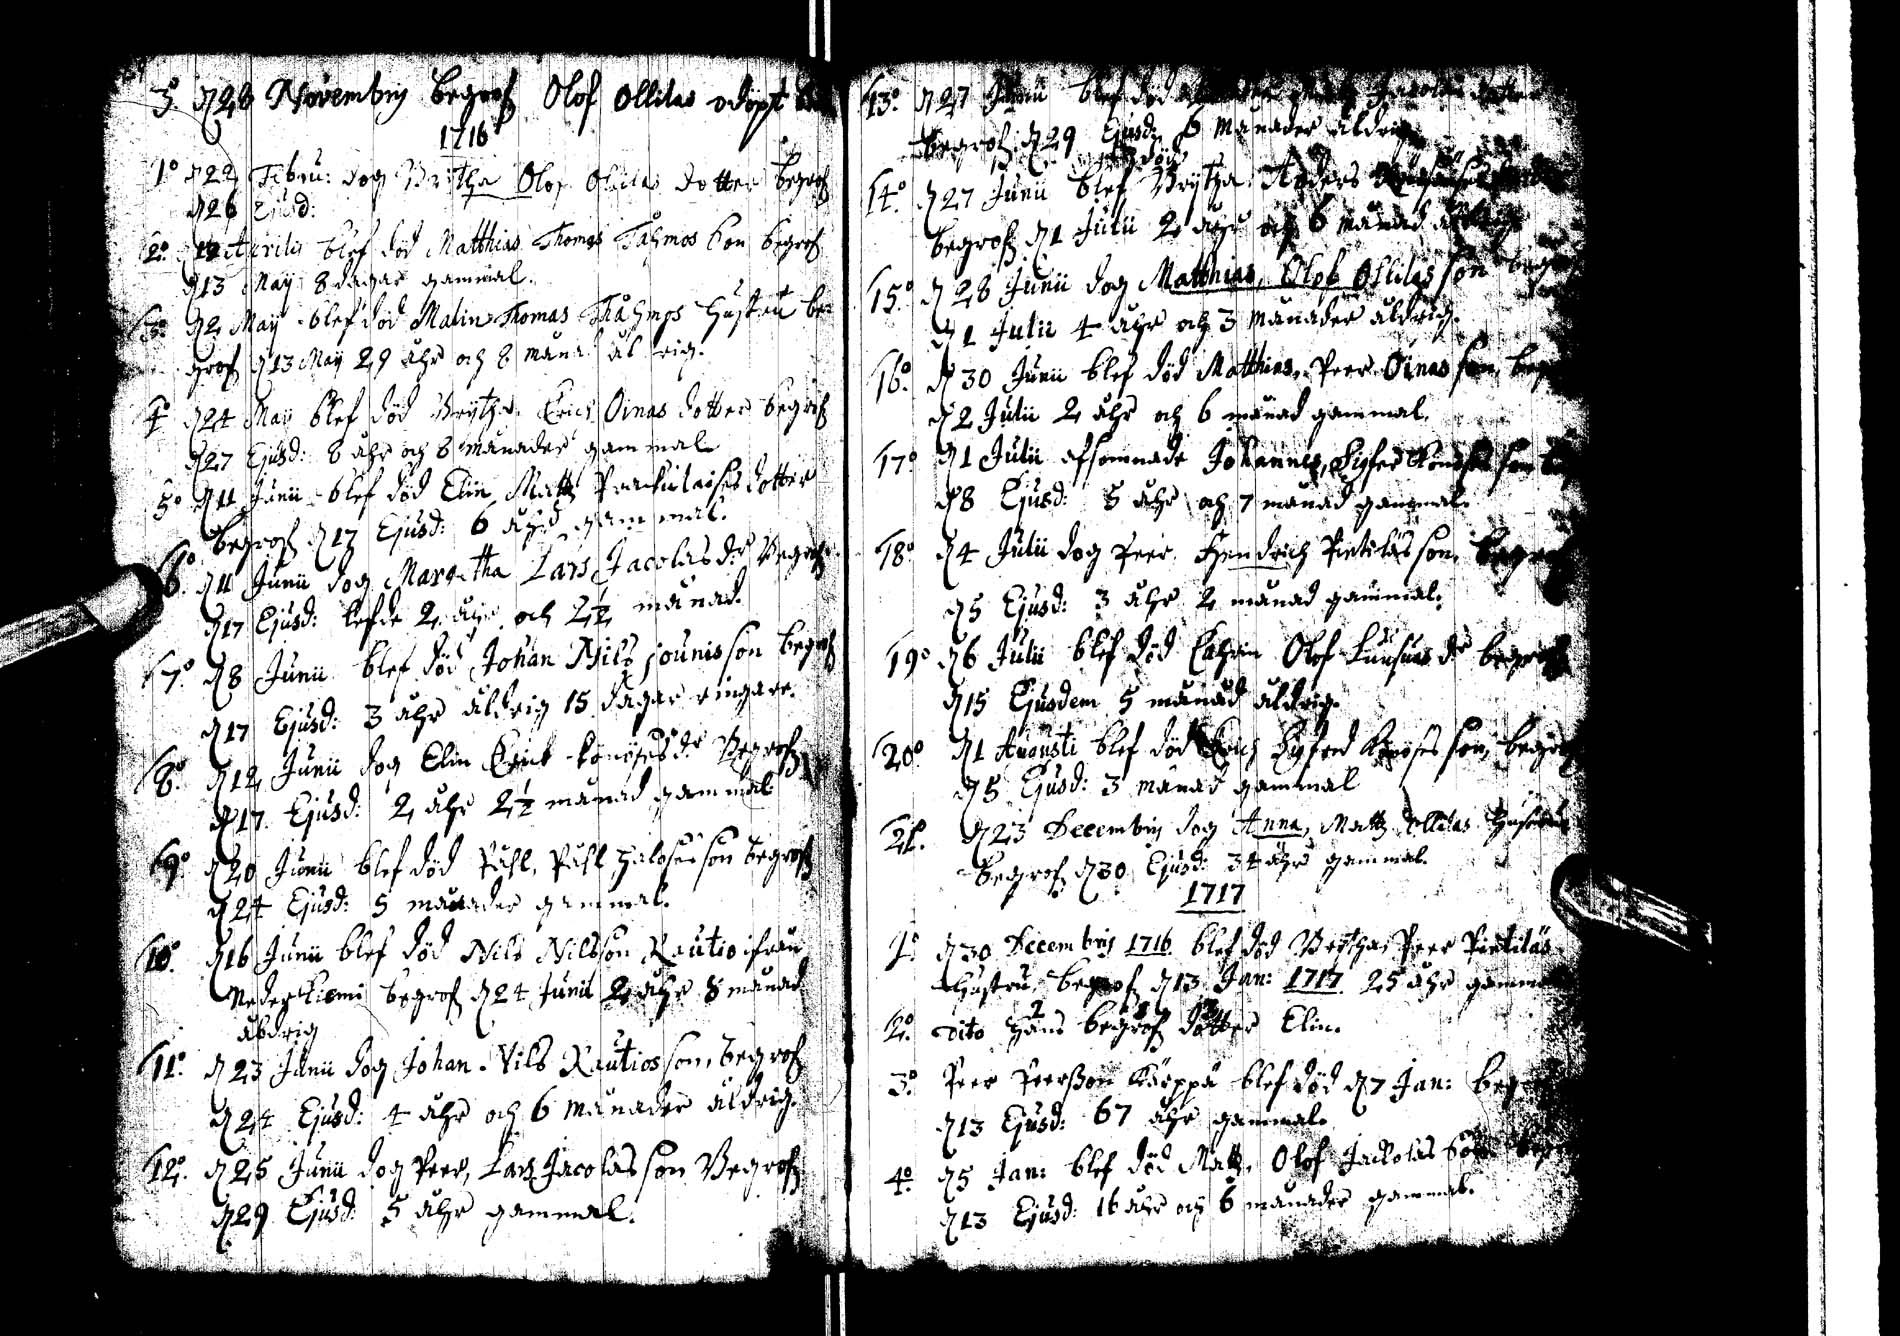 3. d 28 Novembris begrofs Olof Ollilas odöpt
1716
1° d 22 Febru: dog Britha Olof Ollilas dotter begrofs
d 26 Ejusd:
2° d 12 Aprilis blef död Matthias Thomas Tahmos son begrofs
d 13 May 8 dagar gammal.
3° d 2 May blef död Malin Thomas Tháhmos hustru be-
grofs d 13 May 29 åhr och 8 månad åldrig.
4° d 24 May blef död Brytha Erich Oinas dotter begrofs
d 27 Ejusd: 8 åhr och 8 månader gammal
5° d 11 Junii blef död Elin Matz dotter
begrofs d 17 Ejusd: 6 åhr gammal.
6° d 11 Junii dog Margetha Lars Jacolas dr Begrofs
d 17 Ejusd: lefde 2 åhr och 2½ månad.
7° d 8 Junii blef död Johan Nils Jounis son begrofs
d 17 Ejusd: 3 åhr åldrig 15 dagar ringare.
8° d 12 Junii dog Elin Erick dr Begrofs
d 17 Ejusd: 2 åhr 2½ månad gammal
9° d 20 Junii blef död Påhl, Påhl son begrofs
d 24 Ejusd: 5 månader gammal.
10° d 16 Junii blef död Nils Nilsson Rautio ifrån
Neder Kiemi begrofs d 24 Junii 2 åhr 8 månad
åldrig
11° d 23 Junii dog Johan Nils Rautios son, begrofs
d 24 Ejusd: 4 åhr och 6 månader åldrig.
12° d 25 Junii dog Peer, Lars Jacolas son Begrofs
d 29 Ejusd: 5 åhr gammal.
13° d 27 Junii blef död Jacolas dotter
begrofs d 29 Ejusd: 6 månader åldrig
död
14° d 27 Junii blef Brytha Anders
begrofs d 1 Julii 2 åhr och 6 månad åldrig
15° d 28 Junii dog Matthias, Olof Ollilas son
d 1 Julii 4 åhr och 3 månader åldrig.
16° d 30 Junii blef död Matthias, Peer Oinas son,
d 2 Julii 2 åhr och 6 månad gammal.
17° d 1 Julii afsomnade Johannes, Sigfred son
d 8 Ejusd: 5 åhr och 7 månad gammal.
18° d 4 Julii dog Peer Hendrich Pietiläs son, begrofs
d 5 Ejusd: 3 åhr 2 månad gammal.
19° d 6 Julii blef död Cahrin Olof dr begrofs
d 15 Ejusdem 5 månad åldrig.
20° d 1 Augusti blef död Erich Sigfred son, begrofs
d 5 Ejusd: 3 månad gammal
21° d 23 Decembris dog Anna, Matz Ollilas hustru
begrofs d 30 Ejusd: 34 åhr gammal.
1717
1° d 30 Decembris 1716 blef död Brytha, Peer Pietiläs
Hustru, begrofs d 13 Jan: 1717 25 åhr gammal
2° dito hans begrofs dotter Elin.
3° Peer Peersson Kärppä blef död d 7 Jan: begrofs
d 13 Ejusd: 67 åhr gammal.
4° d 5 Jan: blef död Matz, Olof Jackolas son
d 13 Ejusd: 16 åhr och 6 månader gammal.